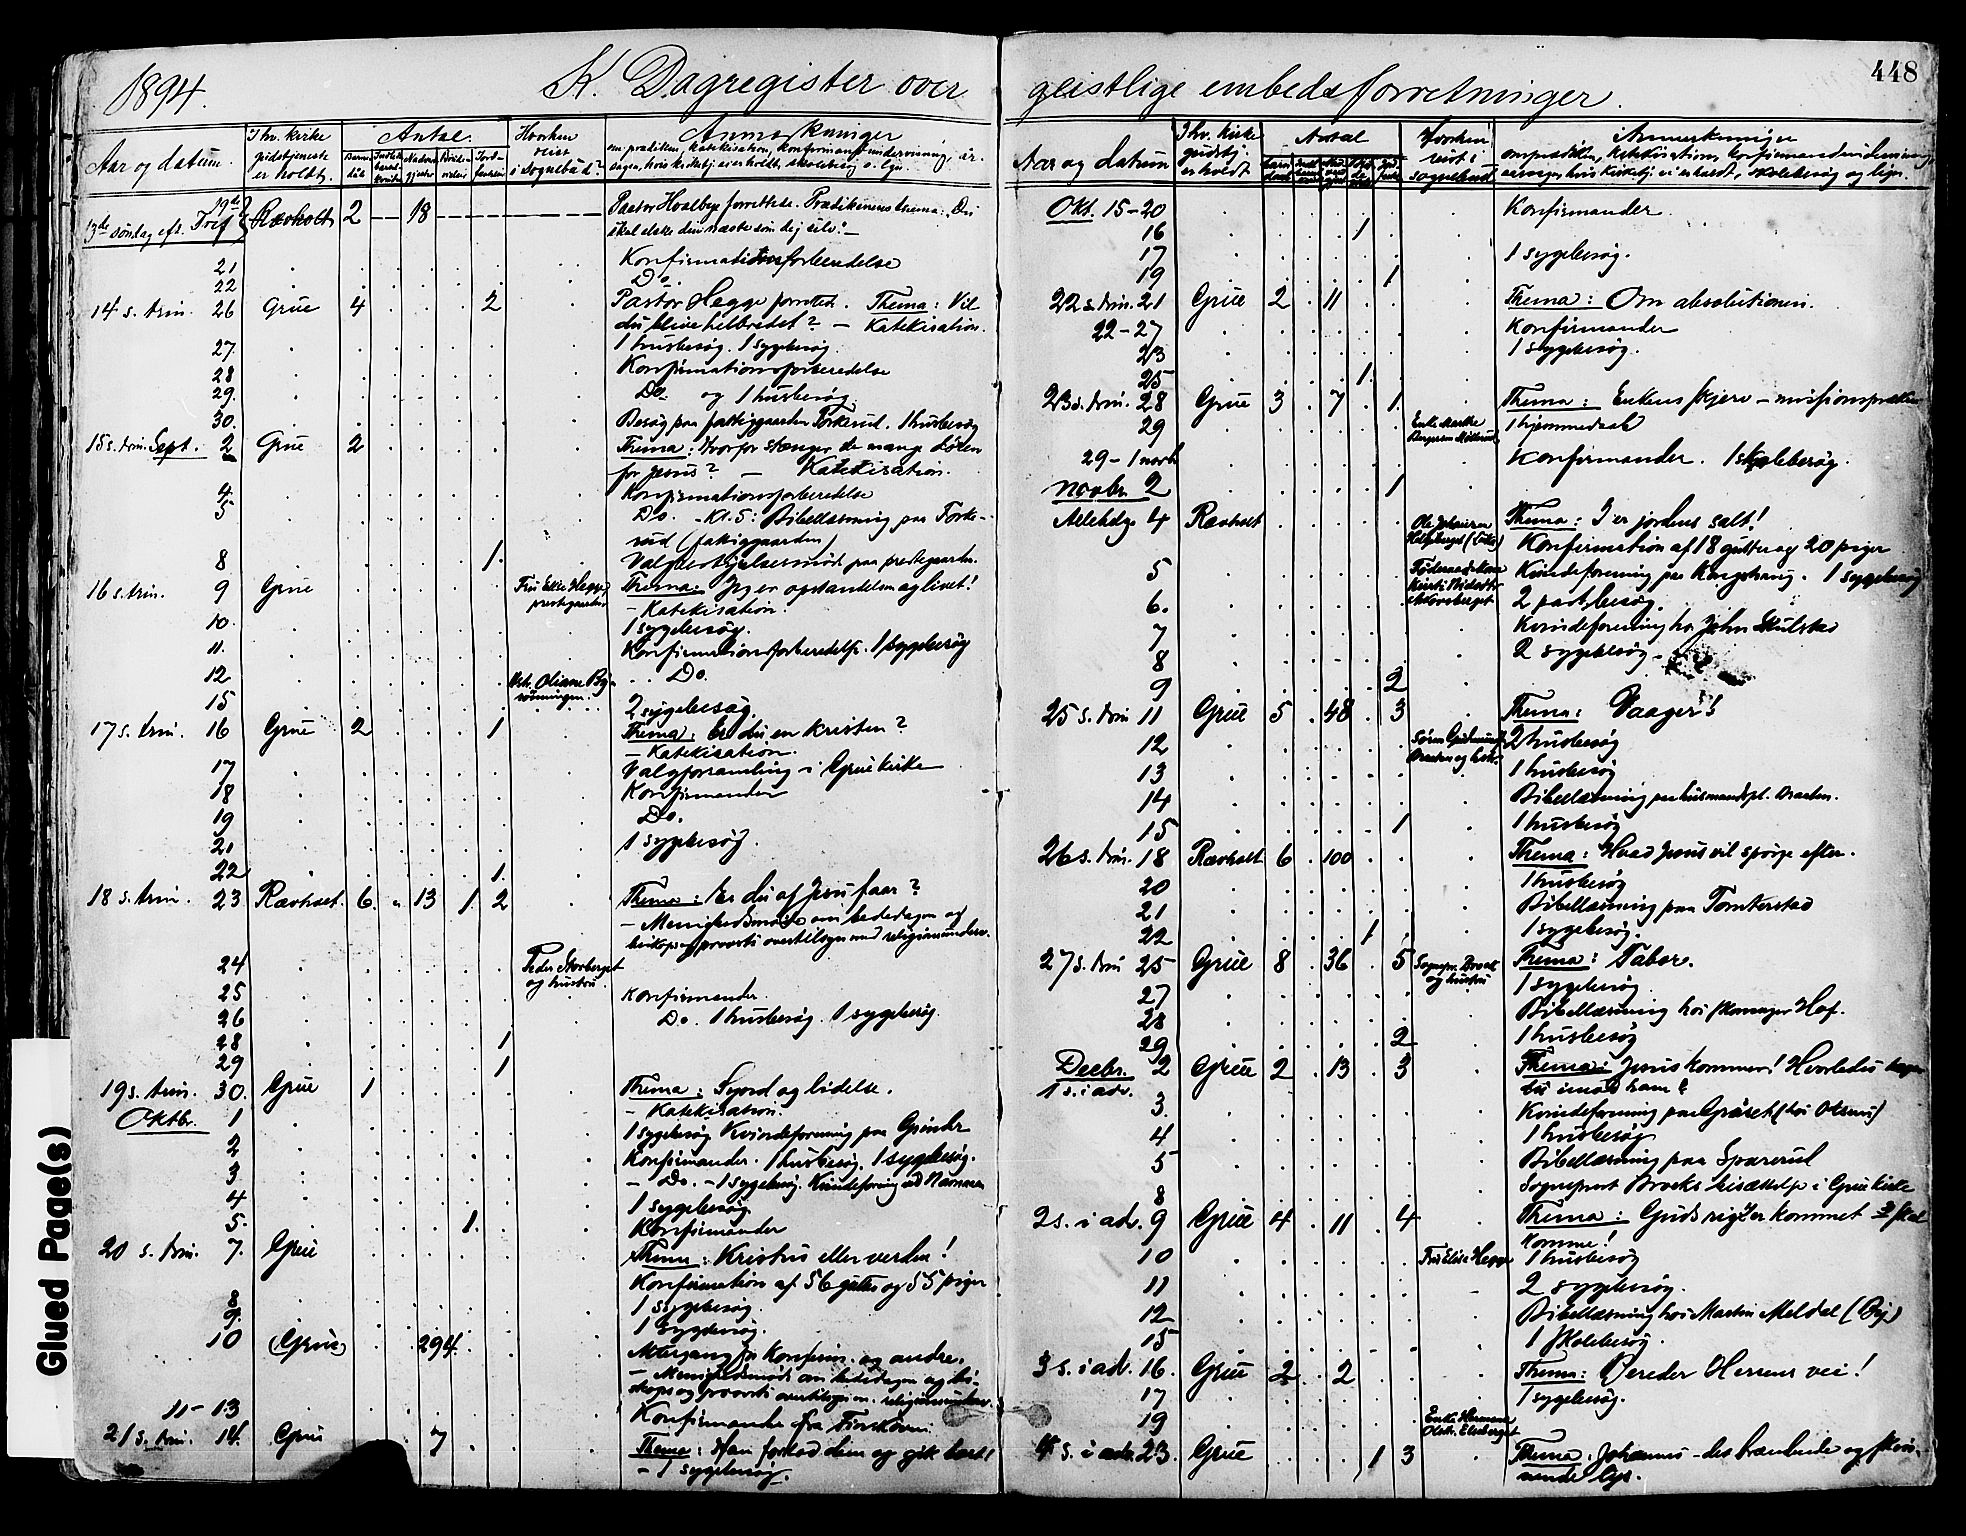 448
1894.
K. Dagregister over geistlige embedsforretninger.
Aar og datum
I hv. kirke gudstjeneste er holdt
Antal
Anmerkninger
13de søndag eft. Tref 19de Ravholt 2 18 Pastor Hvalbye forrettede. Prædikenens thema: Du
skal elske din næste som dig selv! —
21 Konfirmationsforberedelse
22 Do.
14 s. trin. 26 Grue 4 2 Pastor Hegge forrettet. Thema: Vil
du blive helbredet? — Katekisation.
27. 1 husbesøg. 1 sygebesøg
28 Konfirmationsforberedelse
29. Do. og 1 husbesøg.
30. Besøg paa fattiggaarden Torkerud. 1 husbesøg
15 s. trin. Sept. 2 Grue 2 Thema: Hvorfor stænger de mange døren
for Jesus? — Katekisation.
4. Konfirmationsforberedelse
5 Do. - Kl. 5: Bibellæsning paa Torke-
rud (fattiggaarden)
8 1. Valgbestyrelsesmøde paa prestegaarden.
16 s. trin. 9 Grue Fru Elise Hegge, prestegaarden Thema: Jeg er opstandelsen og livet!
— Katekisation.
10. 1 sygebesøg.
11. Konfirmationsforberedelse. 1 sygebesøg
12 Do.
15 2 sygebesøg.
17 s. trin. 16 Grue 2 1 Thema: Er du en kristen?
— Katekisation.
17 Valgforsamling i Grue kirke
18 Konfirmander
19 Do.
21 1 sygebesøg.
22 1.
18 s. trin. 23 Ravholt. 6. „ 13 1 2 Thema: Er du af Jesu faar?
— Menighedsmøde om bededagen og
biskops og provsts overtilsyn med religionsunderv.
24 Peder Storberget og hustru
25 Konfirmander.
26 Do. 1 husbesøg. 1 sygebesøg.
28 1
29 1
19 s. trin. 30. Grue 1 Thema: Synd og lidelse.
— Katekisation.
Oktbr. 1 1 sygebesøg Kvindeforening paa Grinder
2 Konfirmander. 1 husbesøg. 1 sygebesøg.
3 — Do. — 1 sygebesøg. Kvindeforening ved Namnaa
4 1 sygebesøg
5. 1. Konfirmander
20 s. trin. 7. Grue Thema: Kristus eller verden!
Konfirmation af 56 gutter og 55 piger
8 1 sygebesøg.
9. 1 sygebesøg.
10 (Grue) 294. Altergang for konfirm. og andre.
— Menighedsmøde om bededagen og bi-
skops og provsts overtilsyn m. religionsunderv.
11-13 Konfirmander fra Finskoven.
21 s. trin. 14. Grue 7 Thema: Han forlod dem og gik bort!
— 1 sygebesøg.
Aar og datum
I hv. kirke gudstj. er holdt
Antal
Okt. 15-20 Konfirmander
16 1
17 1 sygebesøg.
19 1
22 s. trin. 21 Grue 2 11 Thema: Om absolutionen.
22-27 Konfirmander
23 1 sygebesøg.
25 1.
23 s. trin. 28 Grue 3 7 1 Thema: Enkens skjerv — missionsprædiken
29 1 hjemmedaab
29-1 novb. Konfirmander. 1 skolebesøg.
Novbr. 2 1
Allehelgs 4 Ravholt Thema: I er jordens salt!
Konfirmation af 18 gutter og 20 piger
5 Kvindeforening paa Kongshaug. 1 sygebesøg
6. 2 fattbesøg.
7 Kvindeforening hos John Skulstad
8 2 sygebesøg
9 2
25 s. trin 11 Grue 5 48 3 Thema: Vaager!
12 2 husbesøg
13 1 husbesøg
14 Bibellæsning paa husmandspl. Braaten.
15 1 1 husbesøg
26 s. trin. 18 Ravholt 6 100 Thema: Hvad Jesus vil spørge efter.
20 1 husbesøg
21 Bibellæsning paa Tomterstad
22 1 1 sygebesøg.
27 s. trin 25 Grue 8 36 5 Sognepr. Brock og hustru Thema: Tabor.
27 1 sygebesøg
28 Bibellæsning hos skomager Hof.
29 2 1 husbesøg
Decbr. 2 Grue 2 13 3 Thema: Jesus kommer! Hvorledes tager
1 s. i adv. du imod ham?
3. Kvindeforening paa Grøset (hos Olsens)
4 1 husbesøg
5 Bibellæsning paa Sparerud
8 Sogneprest Brocks bisættelse i Grue kirke
2 s. i adv. 9 Grue 4 11 4 Thema: Guds rige er kommet & skal
komme!
10 Fru Elise Hegge 1 husbesøg
11 2 sygebesøg.
12 Bibellæsning hos Martin Meldal (By)
15 1 skolebesøg.
3 s. i adv. 16. Grue 2 2 Thema: Bereder Herrens vei!
17 1 sygebesøg.
19
4 s. i adv. 23. Grue 1 3 Thema: Johannes — det brændende og skin-
nende lys.
Glued Page(s)